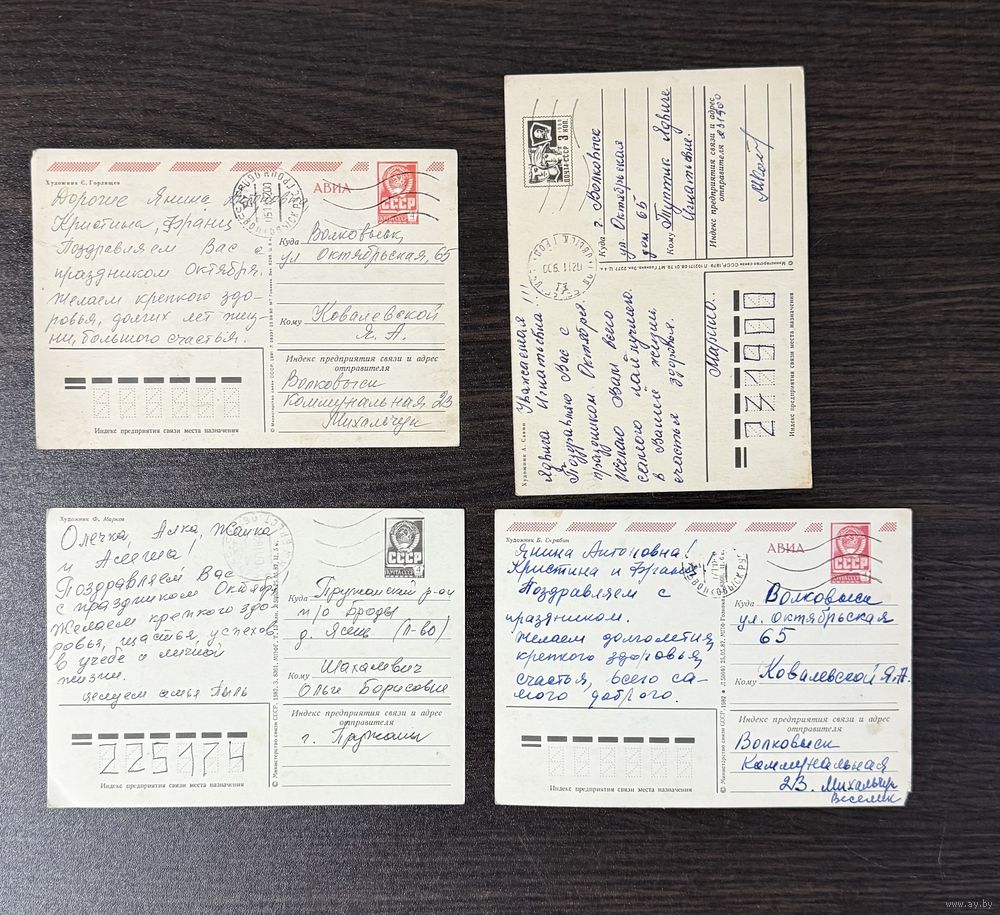 Художник С. Горлищев
АВИА
СССР
Дорогие Янина
Кристина, Франц
Поздравляем Вас с
праздником Октября.
Желаем крепкого здо-
ровья, долгих лет жиз-
ни, большого счастья.
Куда Волковыск,
ул Октябрьская, 65
Кому Ковалевской
Я. А.
Индекс предприятия связи и адрес
отправителя
Волковыск
Коммунальная 23
Михальчук
Индекс предприятия связи места назначения
Художник А. Савин
Уважаемая !!!
Ядвига Игнатьевна
Поздравляю Вас с
праздником Октября.
Желаю Вам всего
самого наилучшего
в Вашей жизни,
счастья здоровья.
ПОЧТА СССР
3 КОП.
Куда г. Волковыск
ул. Октябрьская
дом 65
Кому
Игнатьевне.
Индекс предприятия связи и адрес
отправителя 231900
231900
Индекс предприятия связи места назначения
Художник Ф. Марков
Олечка, Алка, Жанка
и Алегина!
Поздравляем Вас
с праздником Октября,
Желаем крепкого здо-
ровья, счастья, успехов
в учебе и личной
жизни.
целуем семья Пыль
СССР
Куда Пружанский р-он
п/о Броды
д. Ясень (П-во)
Кому Шахалевич
Ольге Борисовне
Индекс предприятия связи и адрес
отправителя
г. Пружаны
225174
Индекс предприятия связи места назначения
Художник Б. Скрябин
АВИА
СССР
Янина Антоновна!
Кристина и Франц!
Поздравляем с
праздником.
Желаем долголетия,
крепкого здоровья,
счастья, всего са-
мого доброго.
Куда Волковыск
ул. Октябрьская
65
Кому Ковалевской Я.А.
Индекс предприятия связи и адрес
отправителя
Волковыск
Коммунальная
23. Михальчук
Индекс предприятия связи места назначения
www.ay.by